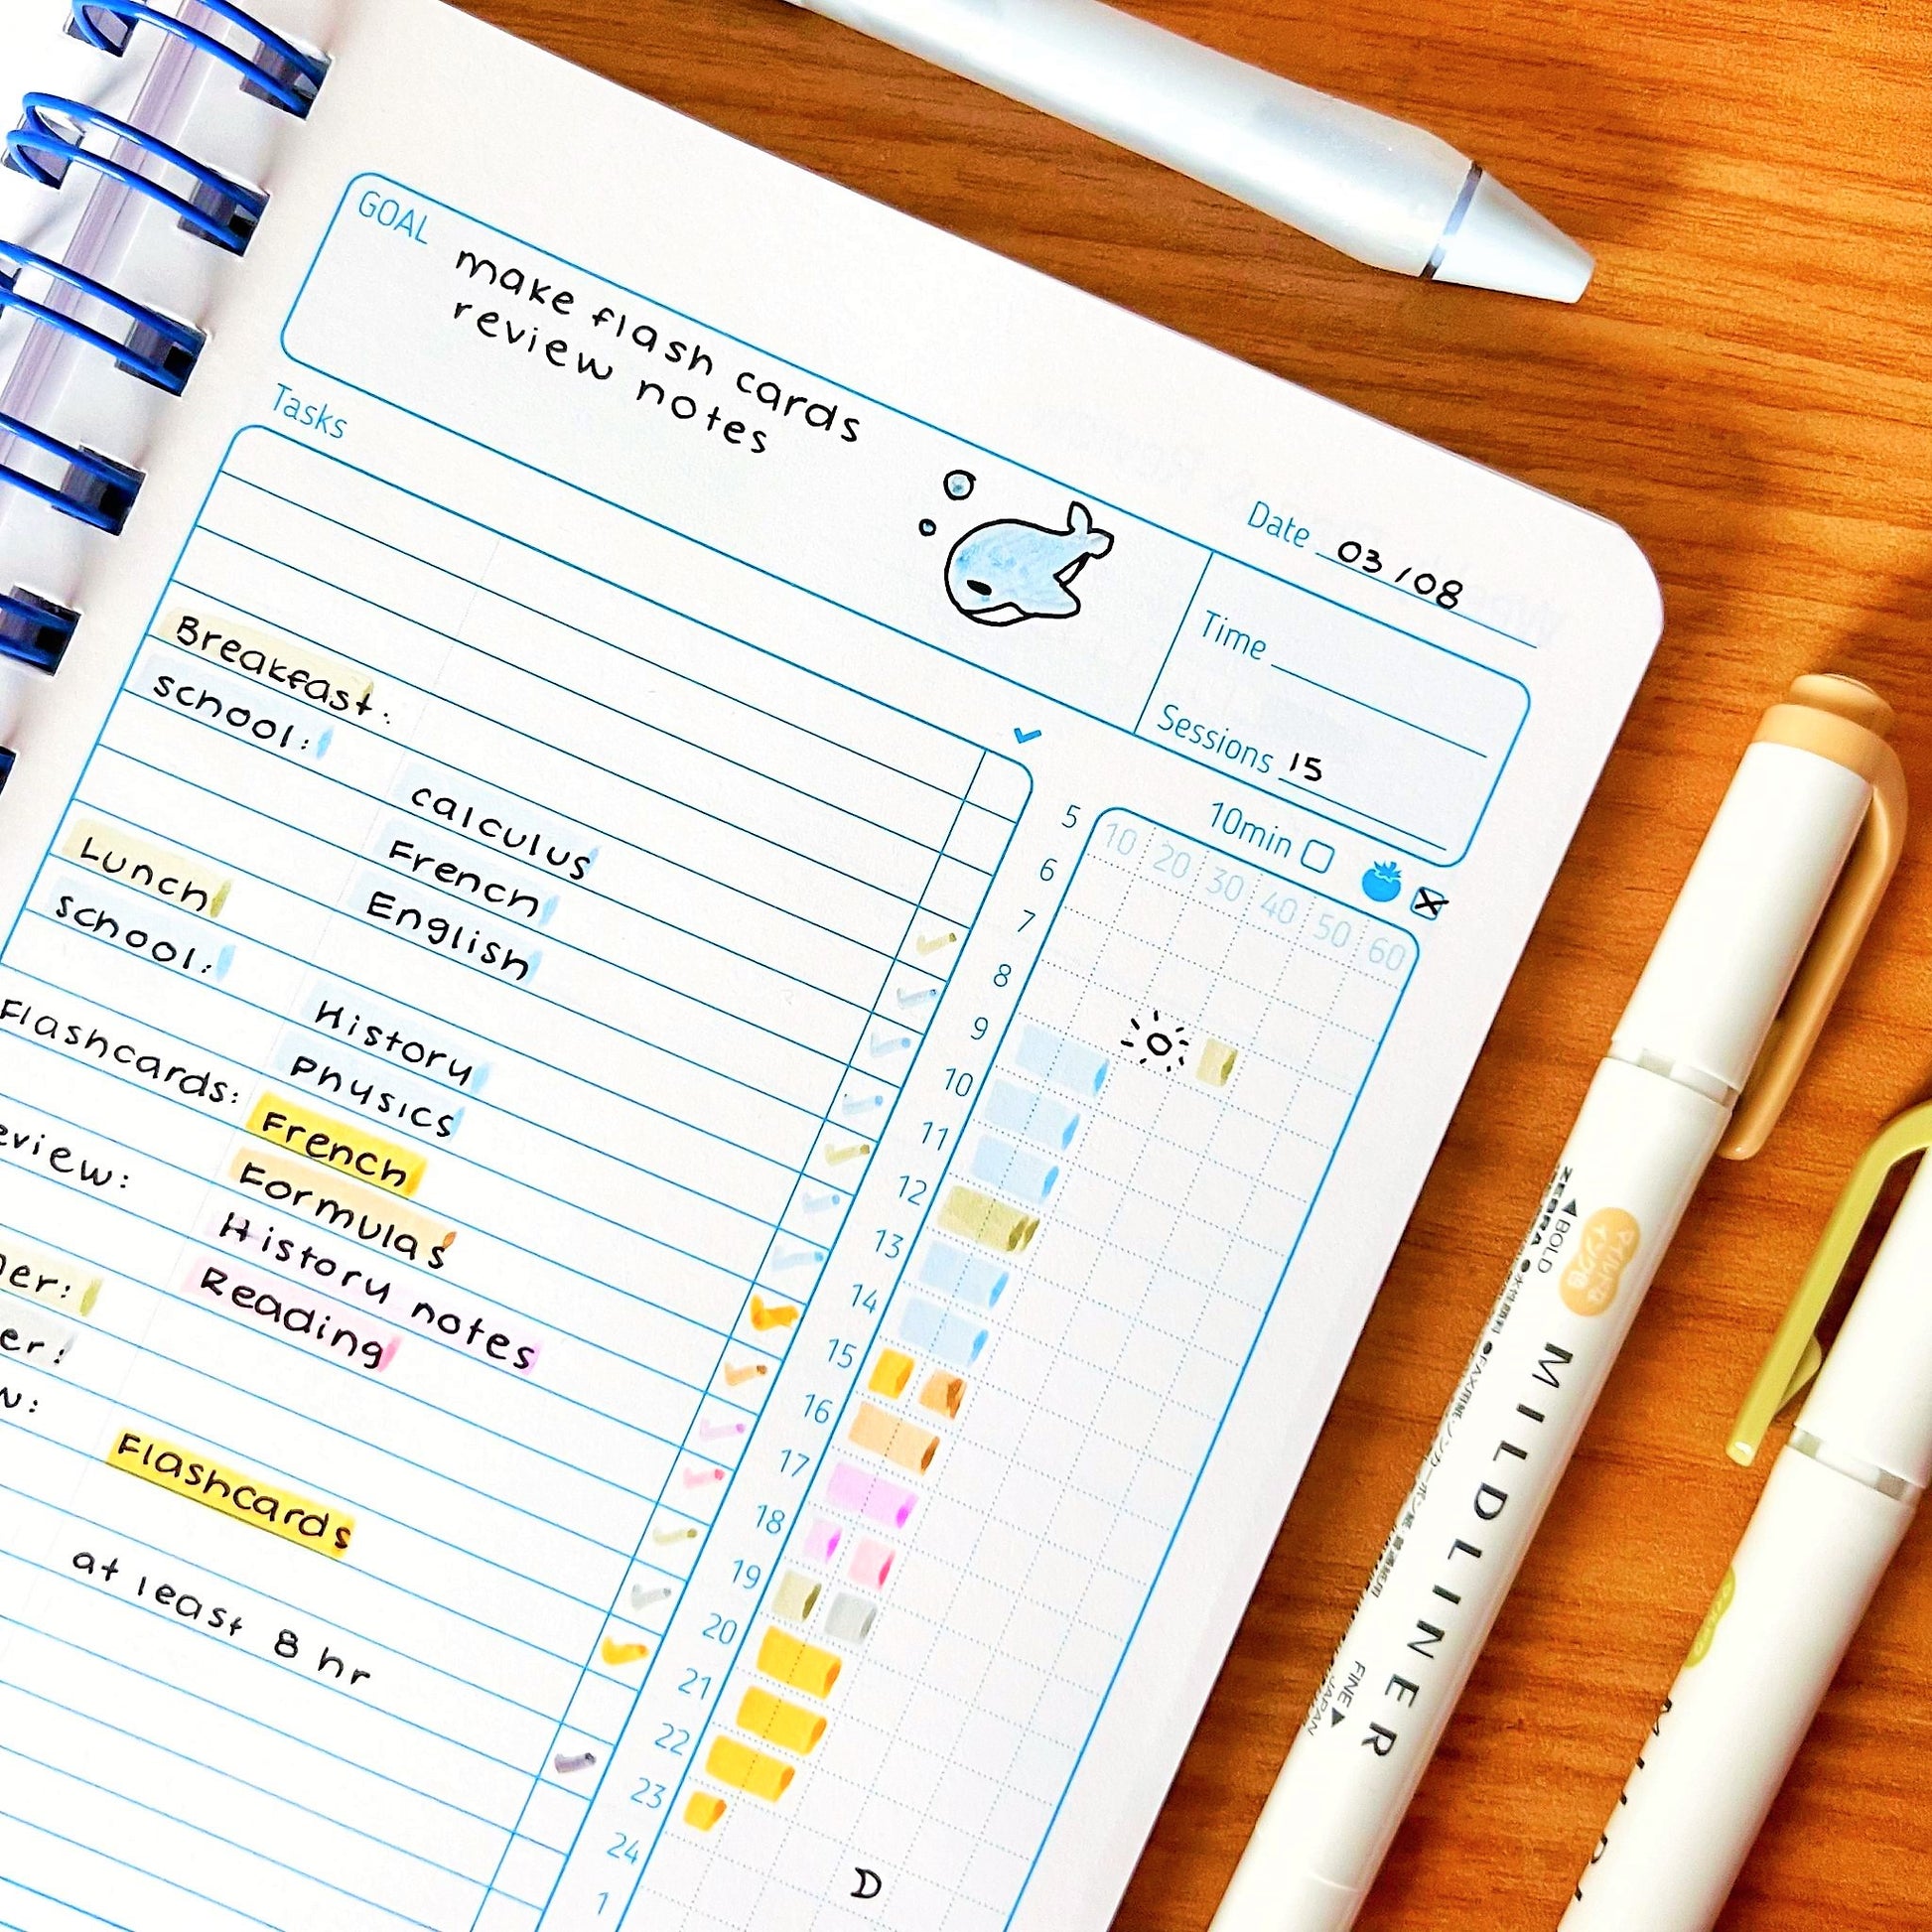 GOAL make flash cards
review notes
Date 03/08
Time
Sessions 15
10min
Tasks
Breakfast:
school: calculus
French
English
Lunch
school: History
Physics
Flashcards: French
Formulas
eview: History notes
Reading
ner:
er:
w: Flashcards
at least 8 hr
5 10 20 30 40 50 60
6
7
8
9
10
11
12
13
14
15
16
17
18
19
20
21
22
23
24
1
ZEBRA
◀BOLD
MILDLINER
FINE▶
JAPAN